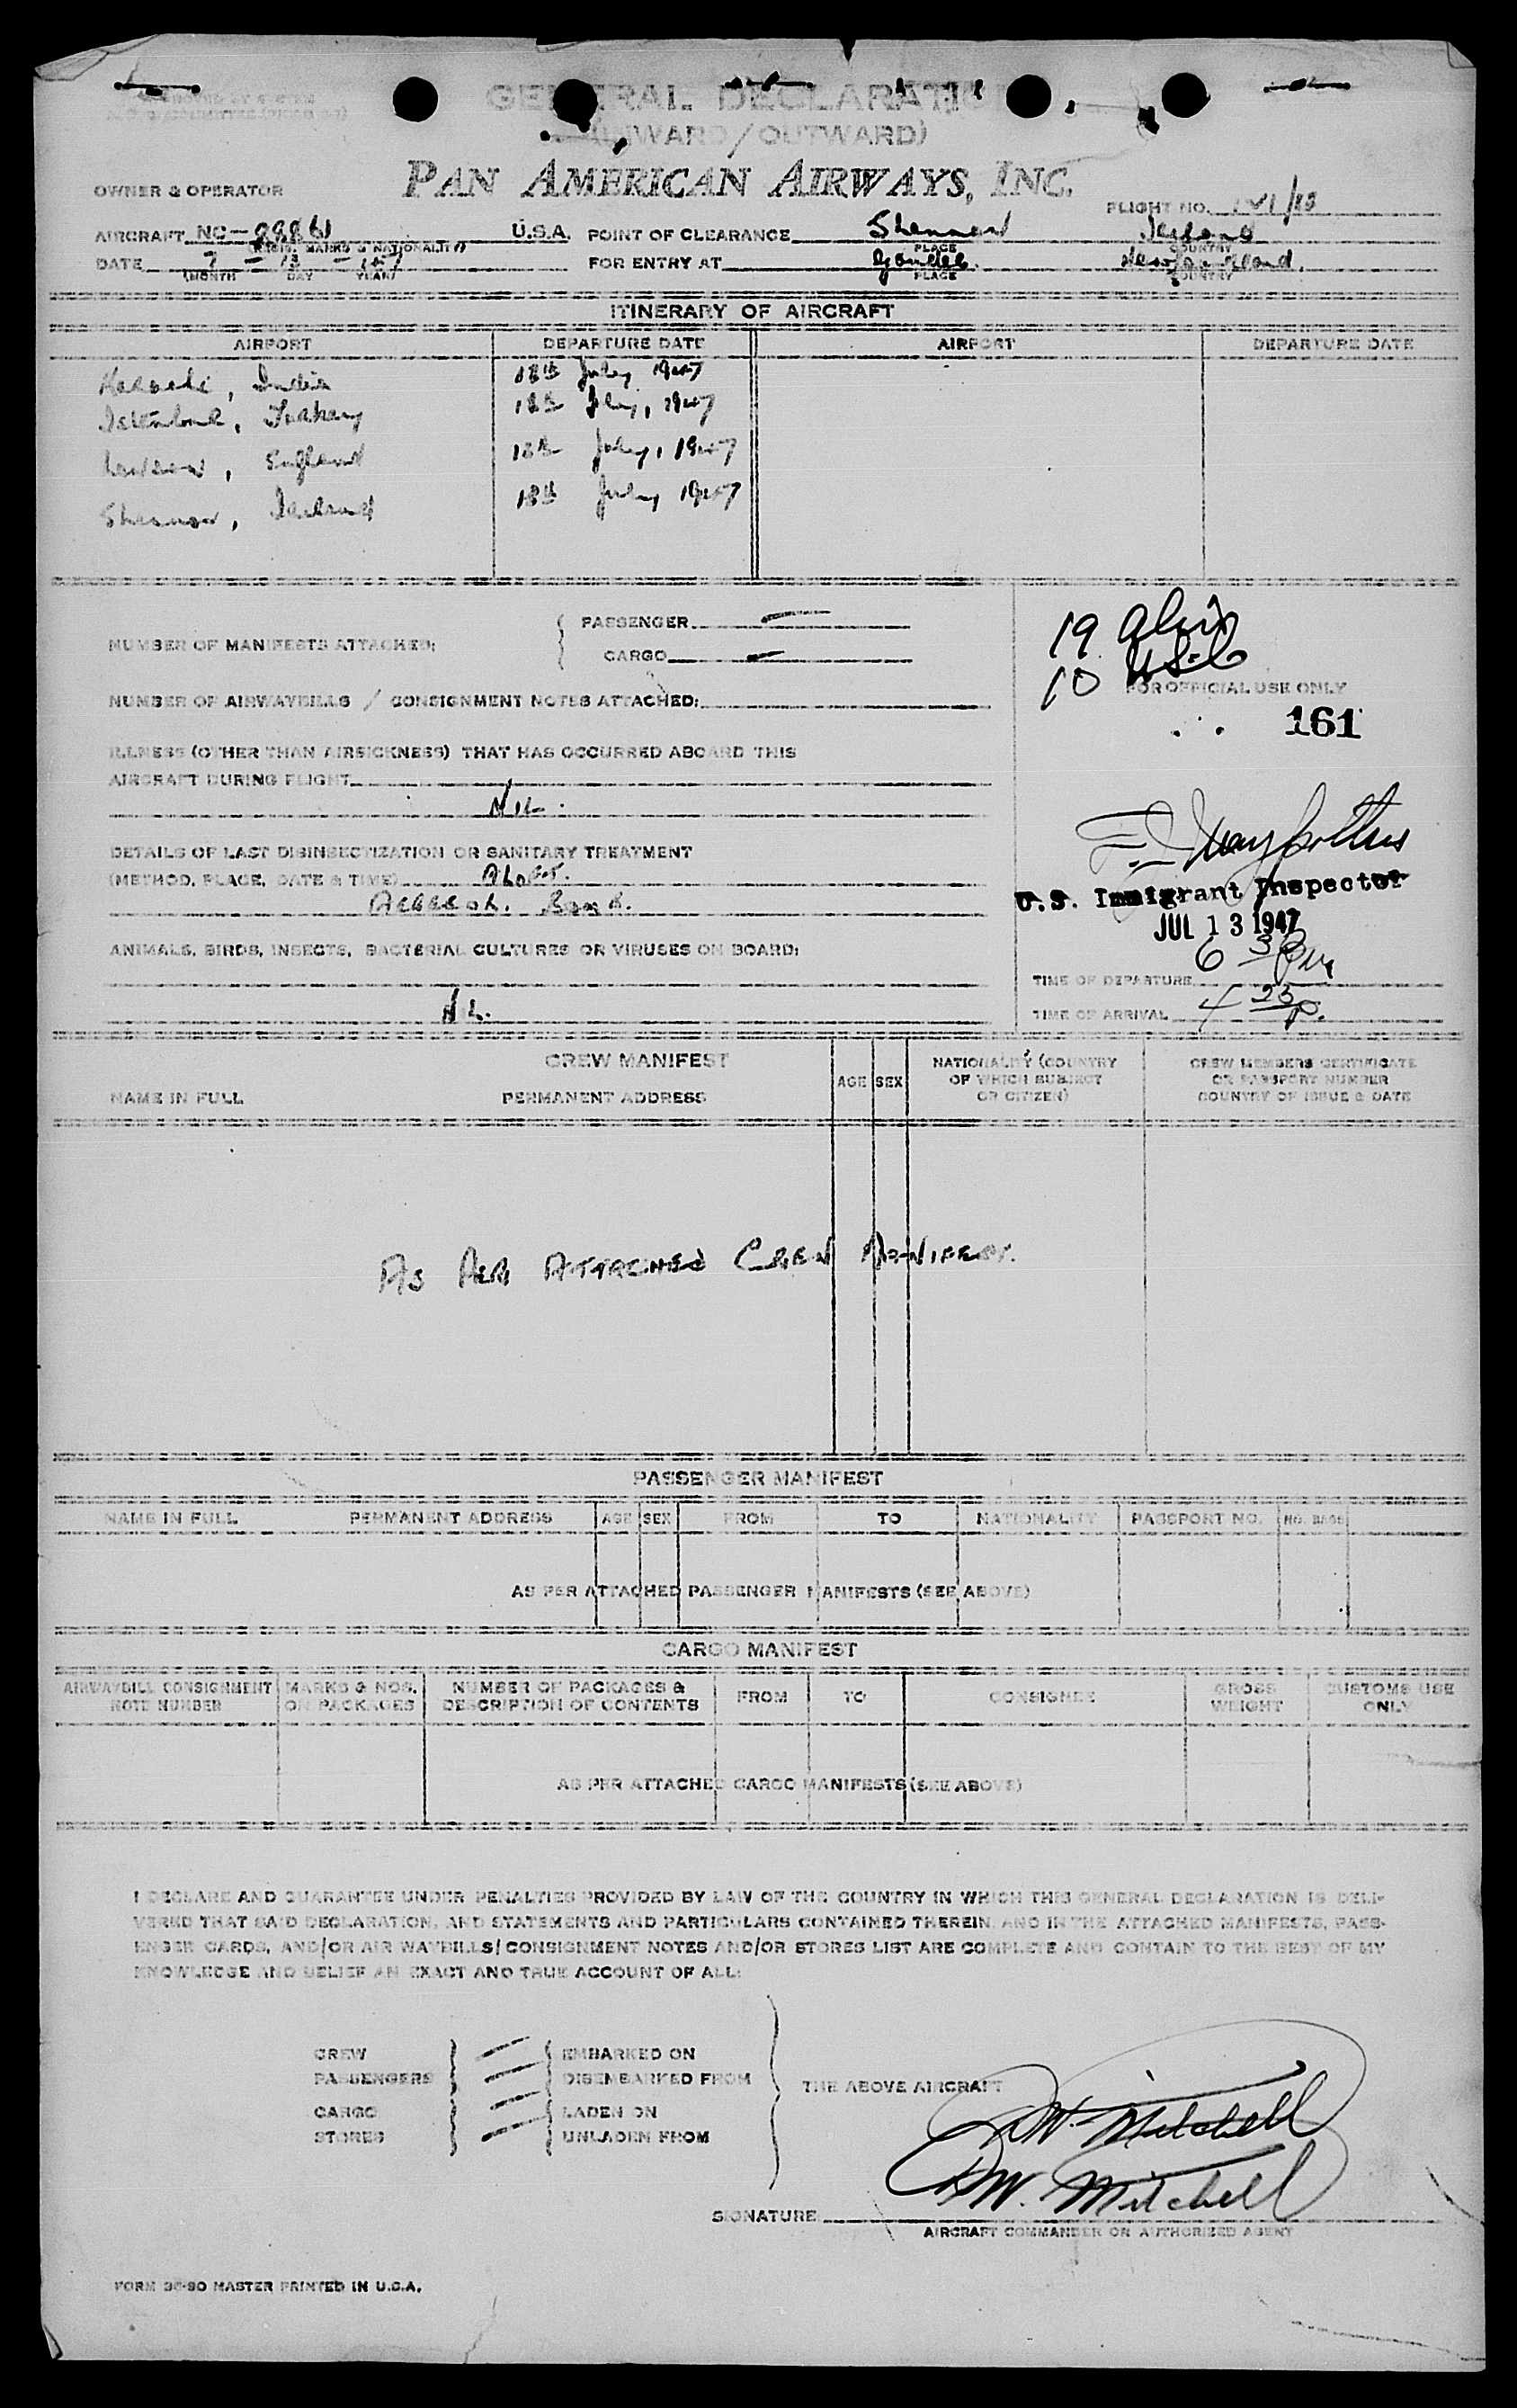 GENERAL DECLARATION
(INWARD / OUTWARD)
PAN AMERICAN AIRWAYS, INC.
OWNER & OPERATOR
FLIGHT NO. 1V1/13
AIRCRAFT NC-88861 U.S.A. POINT OF CLEARANCE Shannon Ireland
(REGIS. MARKS & NATIONALITY) PLACE COUNTRY
DATE 7 - 13 - 1947 FOR ENTRY AT Gander. Newfoundland.
(MONTH DAY YEAR) PLACE COUNTRY
ITINERARY OF AIRCRAFT
AIRPORT DEPARTURE DATE AIRPORT DEPARTURE DATE
Karachi, India 13th July 1947
Istanbul, Turkey 13th July, 1947
London, England 13th July, 1947
Shannon, Ireland 13th July 1947
NUMBER OF MANIFESTS ATTACHED: { PASSENGER —
CARGO —
19 alien
10 USC
FOR OFFICIAL USE ONLY
NUMBER OF AIRWAYBILLS / CONSIGNMENT NOTES ATTACHED:
161
ILLNESS (OTHER THAN AIRSICKNESS) THAT HAS OCCURRED ABOARD THIS
AIRCRAFT DURING FLIGHT
NIL.
DETAILS OF LAST DISINSECTIZATION OR SANITARY TREATMENT
(METHOD, PLACE, DATE & TIME)
Aerosol Bomb.
U.S. Immigrant Inspector
JUL 13 1947
ANIMALS, BIRDS, INSECTS, BACTERIAL CULTURES OR VIRUSES ON BOARD:
NIL.
TIME OF DEPARTURE 6 30 Pm
TIME OF ARRIVAL 4 25 P.
CREW MANIFEST
NAME IN FULL PERMANENT ADDRESS AGE SEX NATIONALITY (COUNTRY OF WHICH SUBJECT OR CITIZEN) CREW MEMBERS CERTIFICATE OR PASSPORT NUMBER COUNTRY OF ISSUE & DATE
AS PER ATTACHED CREW MANIFEST.
PASSENGER MANIFEST
NAME IN FULL PERMANENT ADDRESS AGE SEX FROM TO NATIONALITY PASSPORT NO. NO. BAGS
AS PER ATTACHED PASSENGER MANIFESTS (SEE ABOVE)
CARGO MANIFEST
AIRWAYBILL CONSIGNMENT NOTE NUMBER MARKS & NOS. ON PACKAGES NUMBER OF PACKAGES & DESCRIPTION OF CONTENTS FROM TO CONSIGNEE GROSS WEIGHT CUSTOMS USE ONLY
AS PER ATTACHED CARGO MANIFESTS (SEE ABOVE)
I DECLARE AND GUARANTEE UNDER PENALTIES PROVIDED BY LAW OF THE COUNTRY IN WHICH THIS GENERAL DECLARATION IS DELI-
VERED THAT SAID DECLARATION, AND STATEMENTS AND PARTICULARS CONTAINED THEREIN, AND IN THE ATTACHED MANIFESTS, PASS-
ENGER CARDS, AND/OR AIR WAYBILLS/CONSIGNMENT NOTES AND/OR STORES LIST ARE COMPLETE AND CONTAIN TO THE BEST OF MY
KNOWLEDGE AND BELIEF AN EXACT AND TRUE ACCOUNT OF ALL:
CREW EMBARKED ON
PASSENGERS DISEMBARKED FROM
THE ABOVE AIRCRAFT
CARGO LADEN ON
STORES UNLADEN FROM
DW. Mitchell
DW. Mitchell
SIGNATURE
AIRCRAFT COMMANDER OR AUTHORIZED AGENT
FORM 36-80 MASTER PRINTED IN U.S.A.